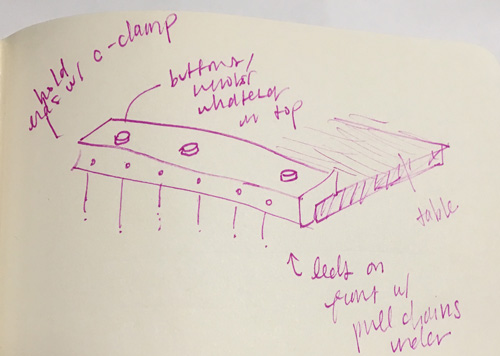 hold
ends w/ c-clamp
buttons/
whatever
on top
table
↑ leds on
front w/
pull chains
under